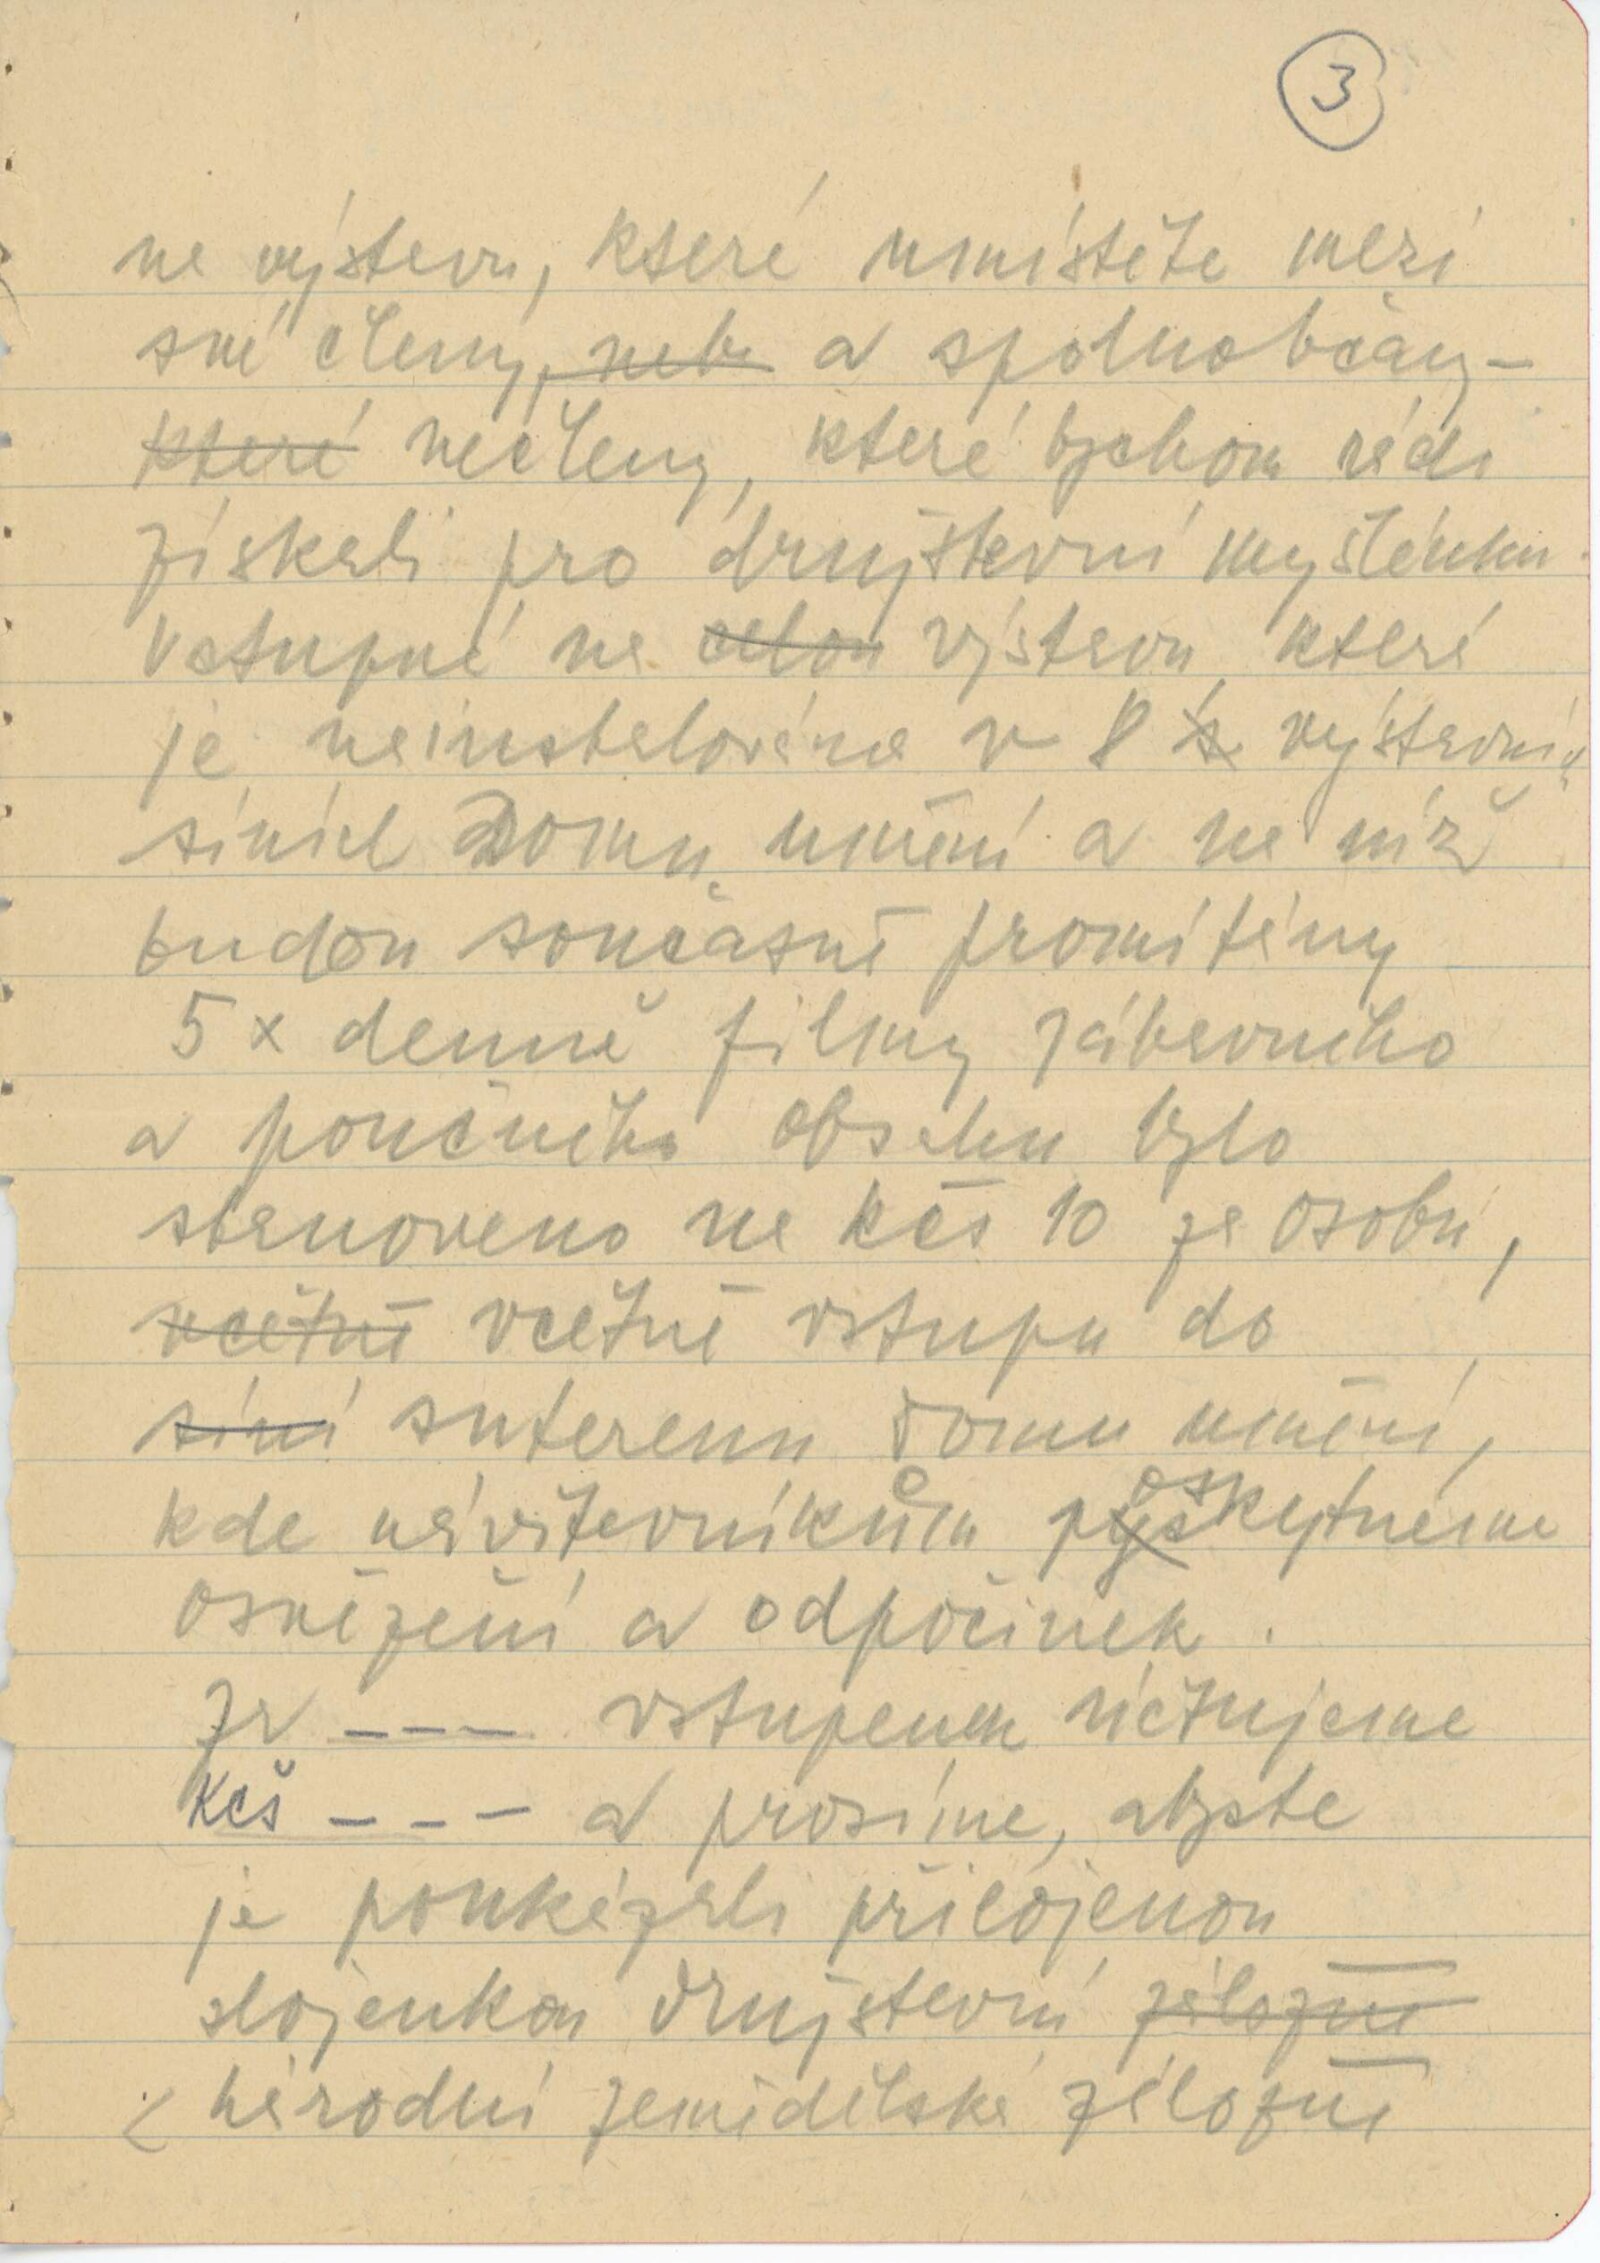 3
na výstavu, které umístěte mezi
své členy, nebo a spoluobčany -
které nečleny, které bychom rádi
získali pro družstevní myšlénku.
Vstupné na celou výstavu, která
je nainstalována v 8 s výstavních
síních Domu umění a na níž
budou současně promítány
5 x denně filmy zábavného
a poučného obsahu bylo
stanoveno na Kčs 10 za osobu,
včetně včetně vstupu do
síní suterenu domu umění,
kde návštevníkům poskytnéme
osvěžení a odpočinek.
Za --- vstupenek účtujeme
Kčs --- a prosíme, abyste
je poukázali přiloženou
složenkou družstevní záložně
národní zemědělské záložně